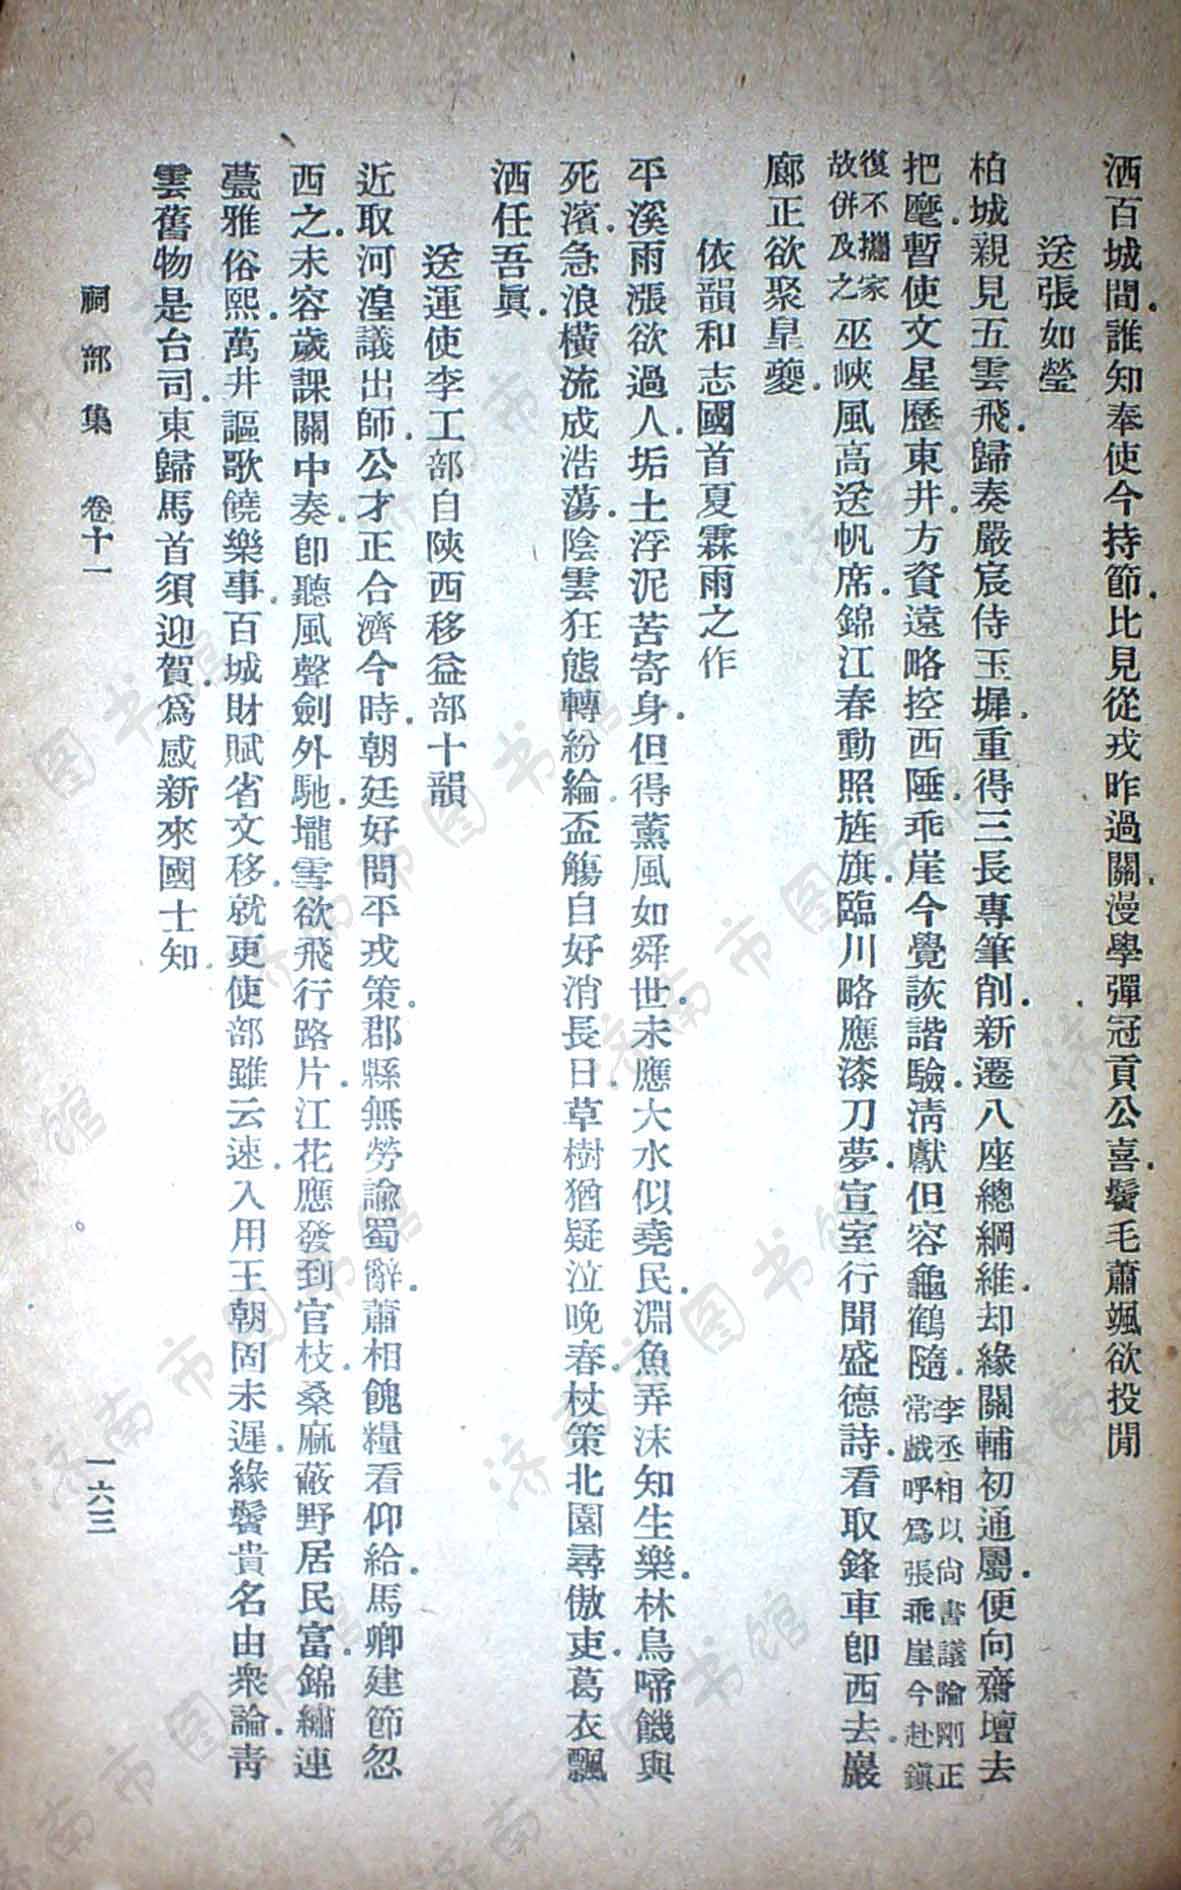 洒百城間誰知奉使今持節比見從戎昨過關漫學彈冠貢公喜鬢毛蕭颯欲投閒
送張如瑩
柏城親見五雲飛歸奏嚴宸侍玉墀重得三長專筆削新遷八座總綱維却緣關輔初通屬便向齋壇去
把麾暫使文星歷東井方資遠略控西陲乖崖今覺詼諧驗淸獻但容龜鶴隨李丞相以尙書議論剛正常戲呼爲張乖崖今赴鎭
復不攜家故併及之巫峽風高送帆席錦江春動照旌旗臨川略應漆刀夢宣室行聞盛德詩看取鋒車卽西去巖
廊正欲聚皐夔
依韻和志國首夏霖雨之作
平溪雨漲欲過人垢土浮泥苦寄身但得薰風如舜世未應大水似堯民淵魚弄沫知生樂林鳥啼饑與
死濱急浪橫流成浩蕩陰雲狂態轉紛綸盃觴自好消長日草樹猶疑泣晚春杖策北園尋傲吏葛衣飄
洒任吾眞
送運使李工部自陝西移益部十韻
近取河湟議出師公才正合濟今時朝廷好問平戎策郡縣無勞諭蜀辭蕭相餽糧看仰給馬卿建節忽
西之未容歲課關中奏卽聽風聲劍外馳壠雪欲飛行路片江花應發到官枝桑麻蔽野居民富錦繡連
甍雅俗熙萬井謳歌饒樂事百城財賦省文移就更使部雖云速入用王朝固未遲緣鬢貴名由衆論靑
雲舊物是台司東歸馬首須迎賀爲感新來國士知
祠部集 卷十一 一六三
济南市图书馆